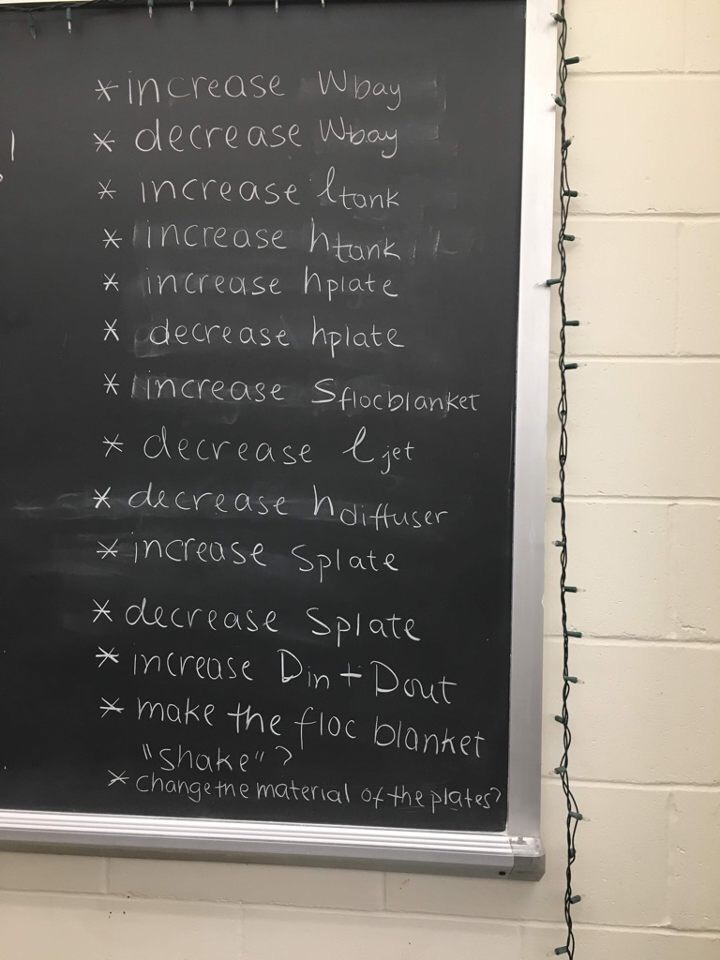 * increase Wbay
* decrease Wbay
* increase ltank
* increase htank
* increase hplate
* decrease hplate
* increase Sflocblanket
* decrease ljet
* decrease hdiffuser
* increase Splate
* decrease Splate
* increase Din + Dout
* make the floc blanket
"shake"?
* change the material of the plates?